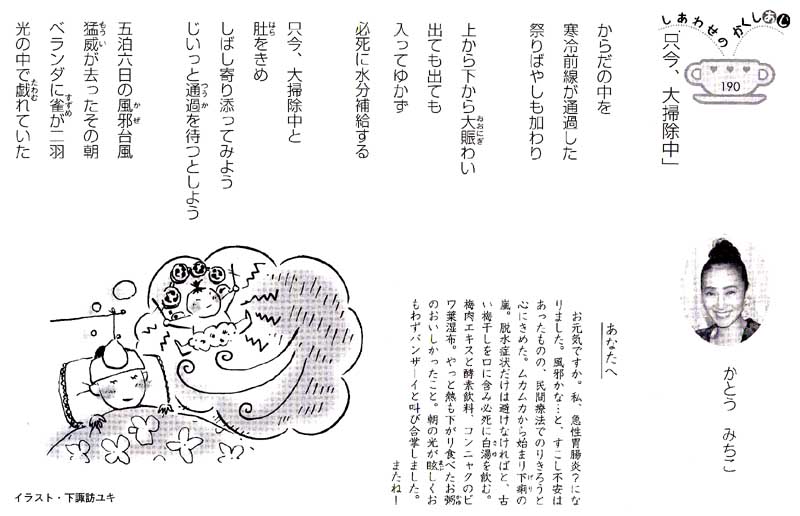 しあわせのかくしあじ
190
「只今、大掃除中」
かとう みちこ
からだの中を
寒冷前線が通過した
祭りばやしも加わり
上から下から大賑わい
出ても出ても
入ってゆかず
必死に水分補給する
只今、大掃除中と
肚をきめ
しばし寄り添ってみよう
じいっと通過を待つとしよう
五泊六日の風邪台風
猛威が去ったその朝
ベランダに雀が二羽
光の中で戯れていた
あなたへ
お元気ですか。私、急性胃腸炎?にな
りました。風邪かな…と、すこし不安は
あったものの、民間療法でのりきろうと
心にきめた。ムカムカから始まり下痢の
嵐。脱水症状だけは避けなければと、古
い梅干しを口に含み必死に白湯を飲む。
梅肉エキスと酵素飲料、コンニャクのビ
ワ葉湿布。やっと熱も下がり食べたお粥
のおいしかったこと。朝の光が眩しくお
もわずバンザーイと叫び合掌しました。
またね!
イラスト・下諏訪ユキ